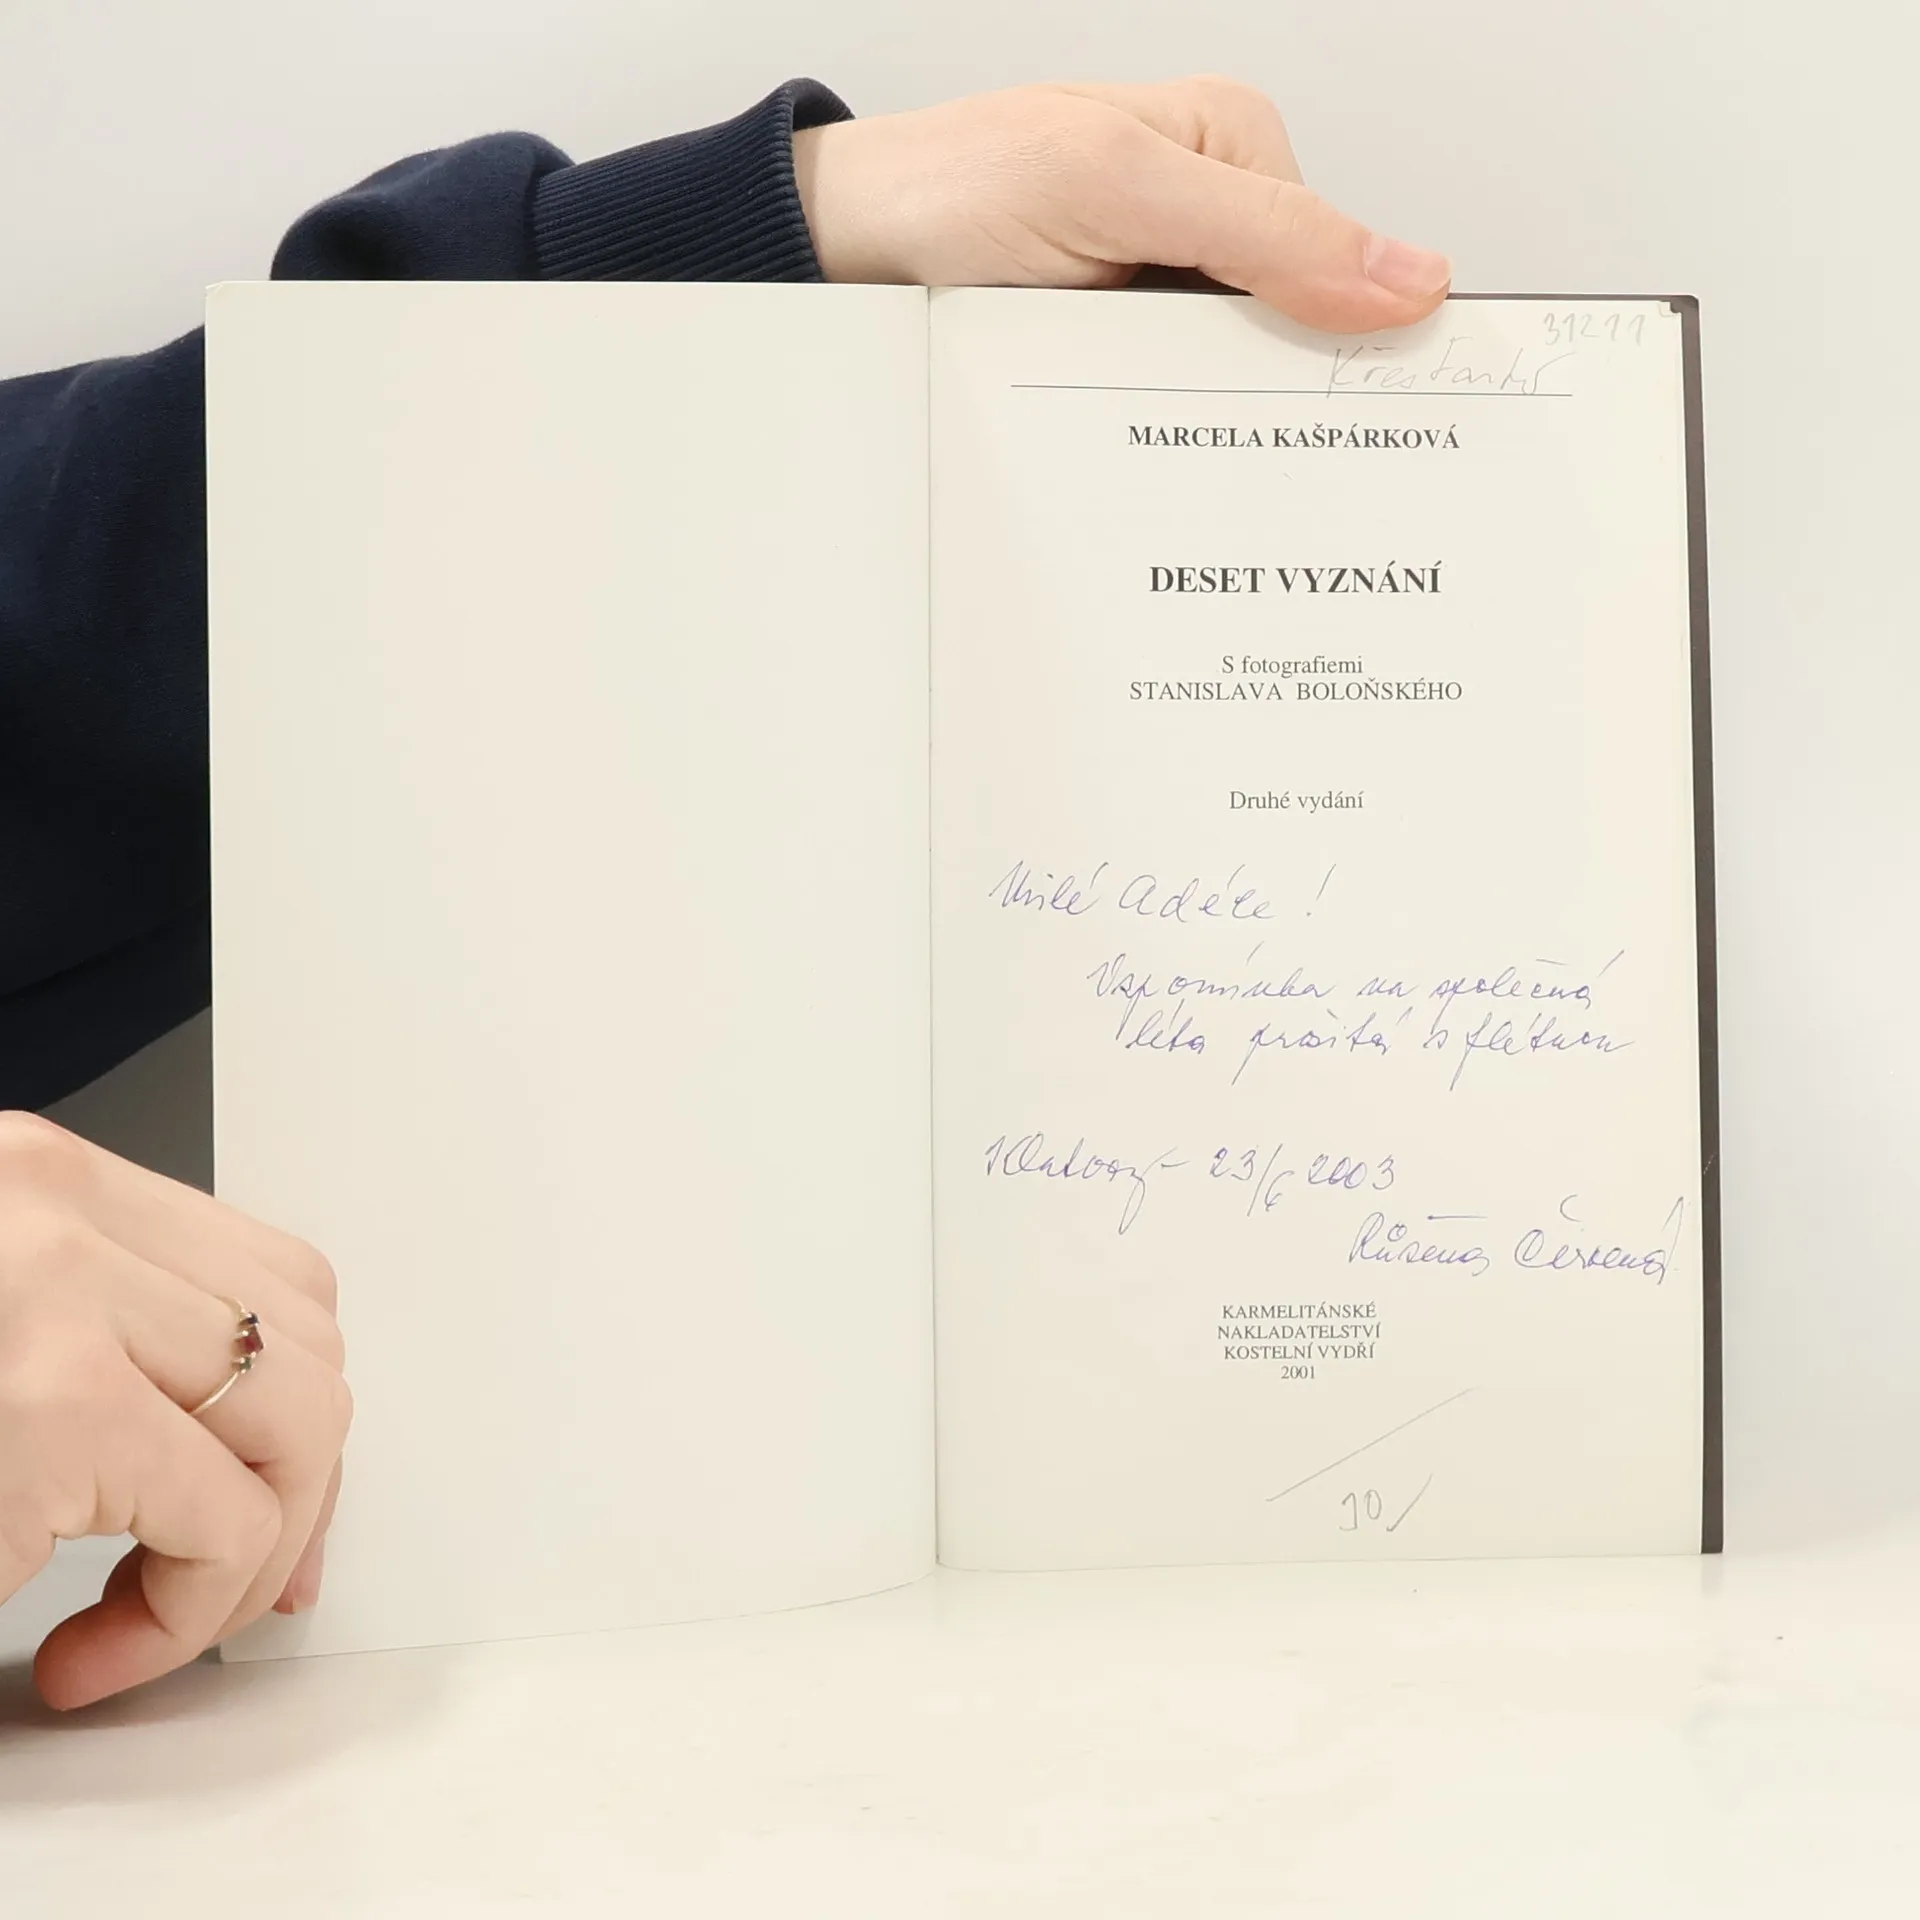 31211
Křesťanství
MARCELA KAŠPÁRKOVÁ
DESET VYZNÁNÍ
S fotografiemi
STANISLAVA BOLOŇSKÉHO
Druhé vydání
Milé Adéle!
Vzpomínka na společná
léta prožitá s flétnou
Klatovy - 23/6 2003
Růžena Červená
KARMELITÁNSKÉ
NAKLADATELSTVÍ
KOSTELNÍ VYDŘÍ
2001